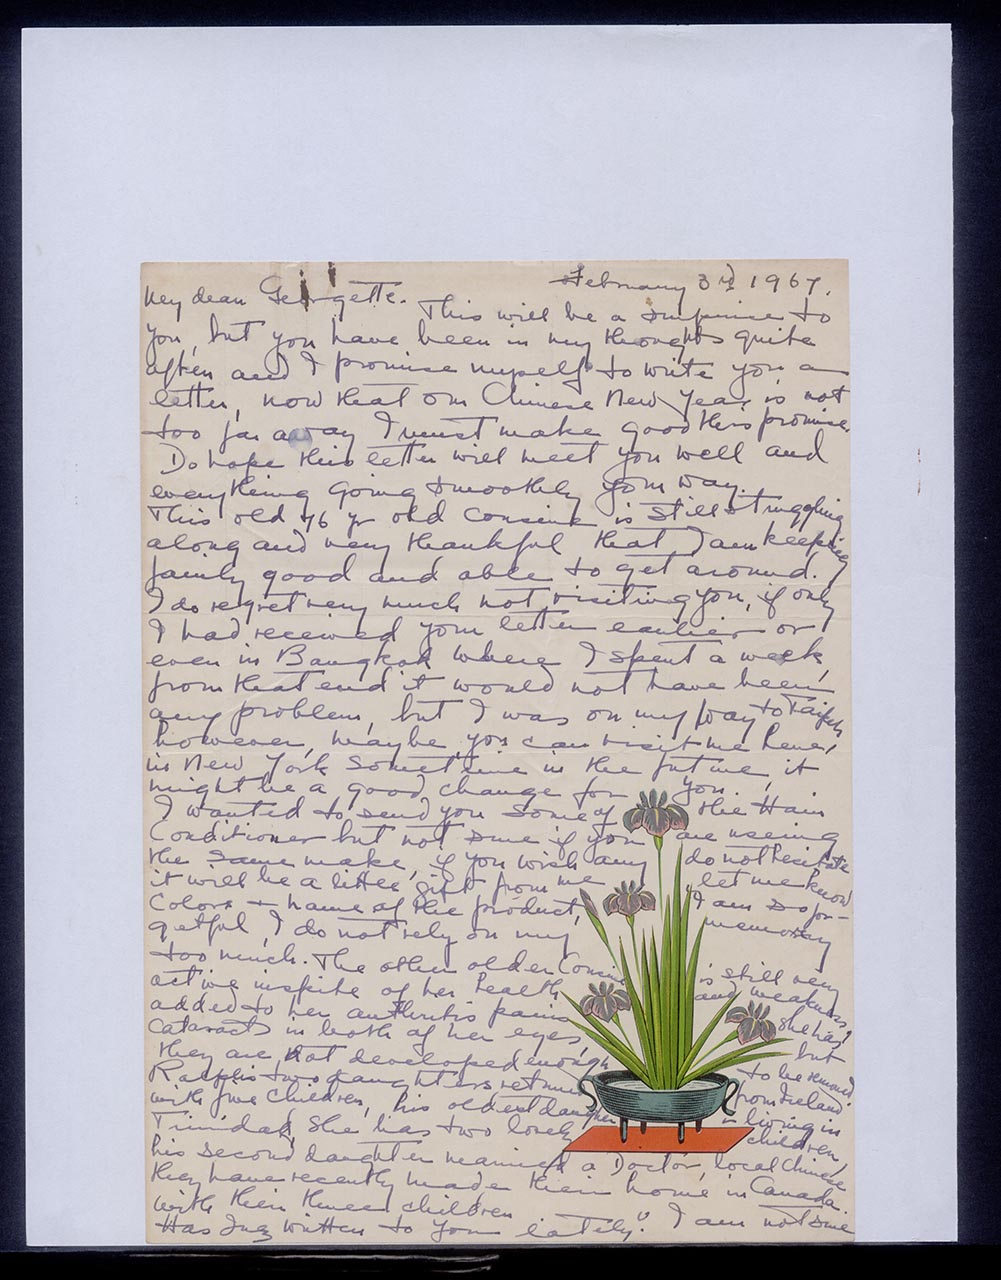 February 3rd 1967.
My dear Georgette.
This will be a surprise to
you, but you have been in my thoughts quite
often and I promise myself to write you a
letter, now that our Chinese New Year is not
too far away I must make good this promise.
Do hope this letter will meet you well and
everything going smoothly your way.
This old 76 yr old cousin is still struggling
along and very thankful that I am keeping
fairly good and able to get around.
I do regret very much not visiting you, if only
I had received your letter earlier or
even in Bangkok where I spent a week,
from that end it would not have been
any problem, but I was on my way to Taipeh
however, maybe you can visit me here,
in New York sometime in the future, it
might be a good change for you.
I wanted to send you some of the Hair
Conditioner but not sure if you are useing
the same make, if you wish any do not hesitate
it will be a little gift from me let me know
Colors + name of the product, I am so for-
getful, I do not rely on my memory
too much. The other older Cousin is still very
active inspite of her health and weakness,
added to her arthritis pains she has
cataracts in both of her eyes, but
they are not developed enough to be removed.
Ralph's two daughters returned from Ireland
with five children, his oldest daughter living in
Trinidad, she has two lovely children,
his second daughter married a Doctor, local Chinese
they have recently made their home in Canada.
with their three children
Has written to you lately? I am not sure